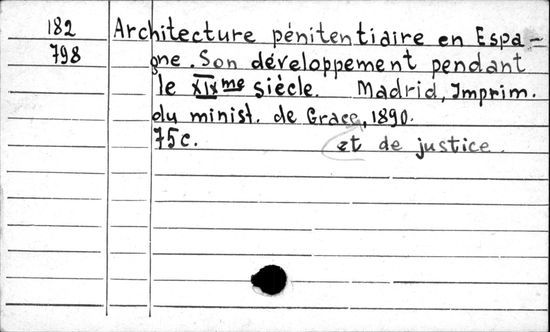 182 Architecture pénitentiaire en Espa-
798 gne. Son développement pendant
le XIXme siècle. Madrid, Imprim.
du minist. de Grace, 1890.
75c. et de justice.